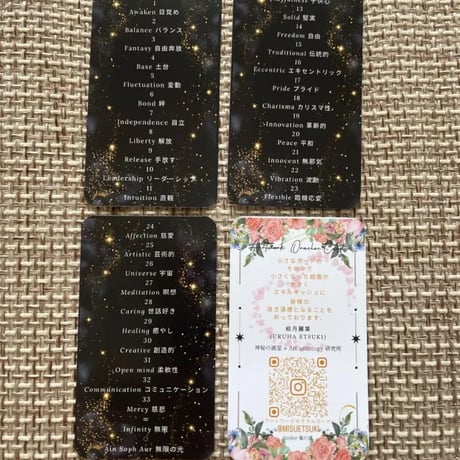 Awaken 目覚め
2
Balance バランス
3
Fantasy 自由奔放
4
Base 土台
5
Fluctuation 変動
6
Bond 絆
7
Independence 自立
8
Liberty 解放
9
Release 手放す
10
Leadership リーダーシップ
11
Intuition 直観
13
Solid 堅実
14
Freedom 自由
15
Traditional 伝統的
16
Eccentric エキセントリック
17
Pride プライド
18
Charisma カリスマ性
19
Innovation 革新的
20
Peace 平和
21
Innocent 無邪気
22
Vibration 波動
23
Flexible 臨機応変
24
Affection 慈愛
25
Artistic 芸術的
26
Universe 宇宙
27
Meditation 瞑想
28
Caring 世話好き
29
Healing 癒やし
30
Creative 創造的
31
Open mind 柔軟性
32
Communication コミュニケーション
33
Mercy 慈悲
∞
Infinity 無限
Ain Soph Aur 無限の光
小さなカードの
その中で
小さくなった絵画が
エネルギッシュに
皆様の
良き道標となることを
祈っております。
絵月麗葉
(URUHA ETSUKI)
神秘の画室 × Art astrology 研究所
アートワークオラクルカード
@MISUETSUKI